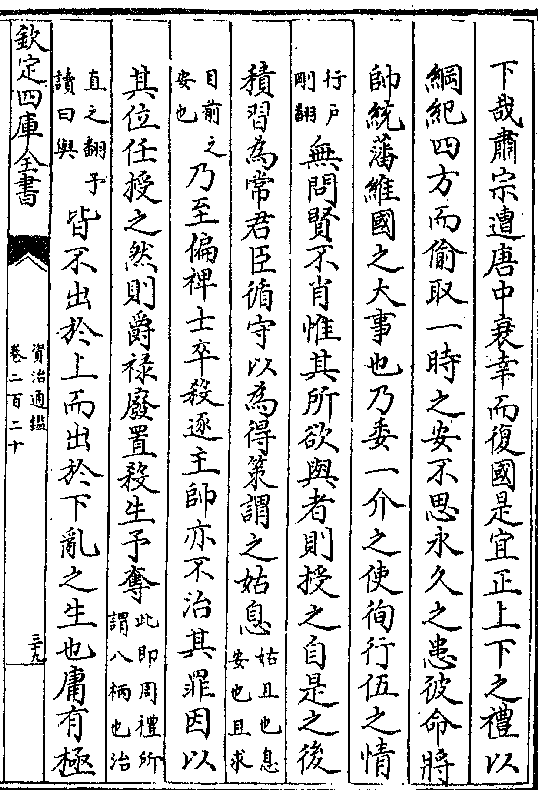 下哉肅宗遭唐中衰幸而復國是宜正上下之禮以
綱紀四方而偷取一時之安不思永久之患彼命將
帥統藩維國之大事也乃委一介之使徇行伍之情
行戶剛翻無問賢不肖惟其所欲與者則授之自是之後
積習為常君臣循守以為得策謂之姑息姑且也息安也且求
目前之安也乃至偏裨士卒殺逐主帥亦不治其罪因以
其位任授之然則爵祿廢置殺生予奪此即周禮所謂八柄也治
直之翻予讀曰與皆不出於上而出於下亂之生也庸有極
欽定四庫全書
資治通鑑
卷二百二十
三十九